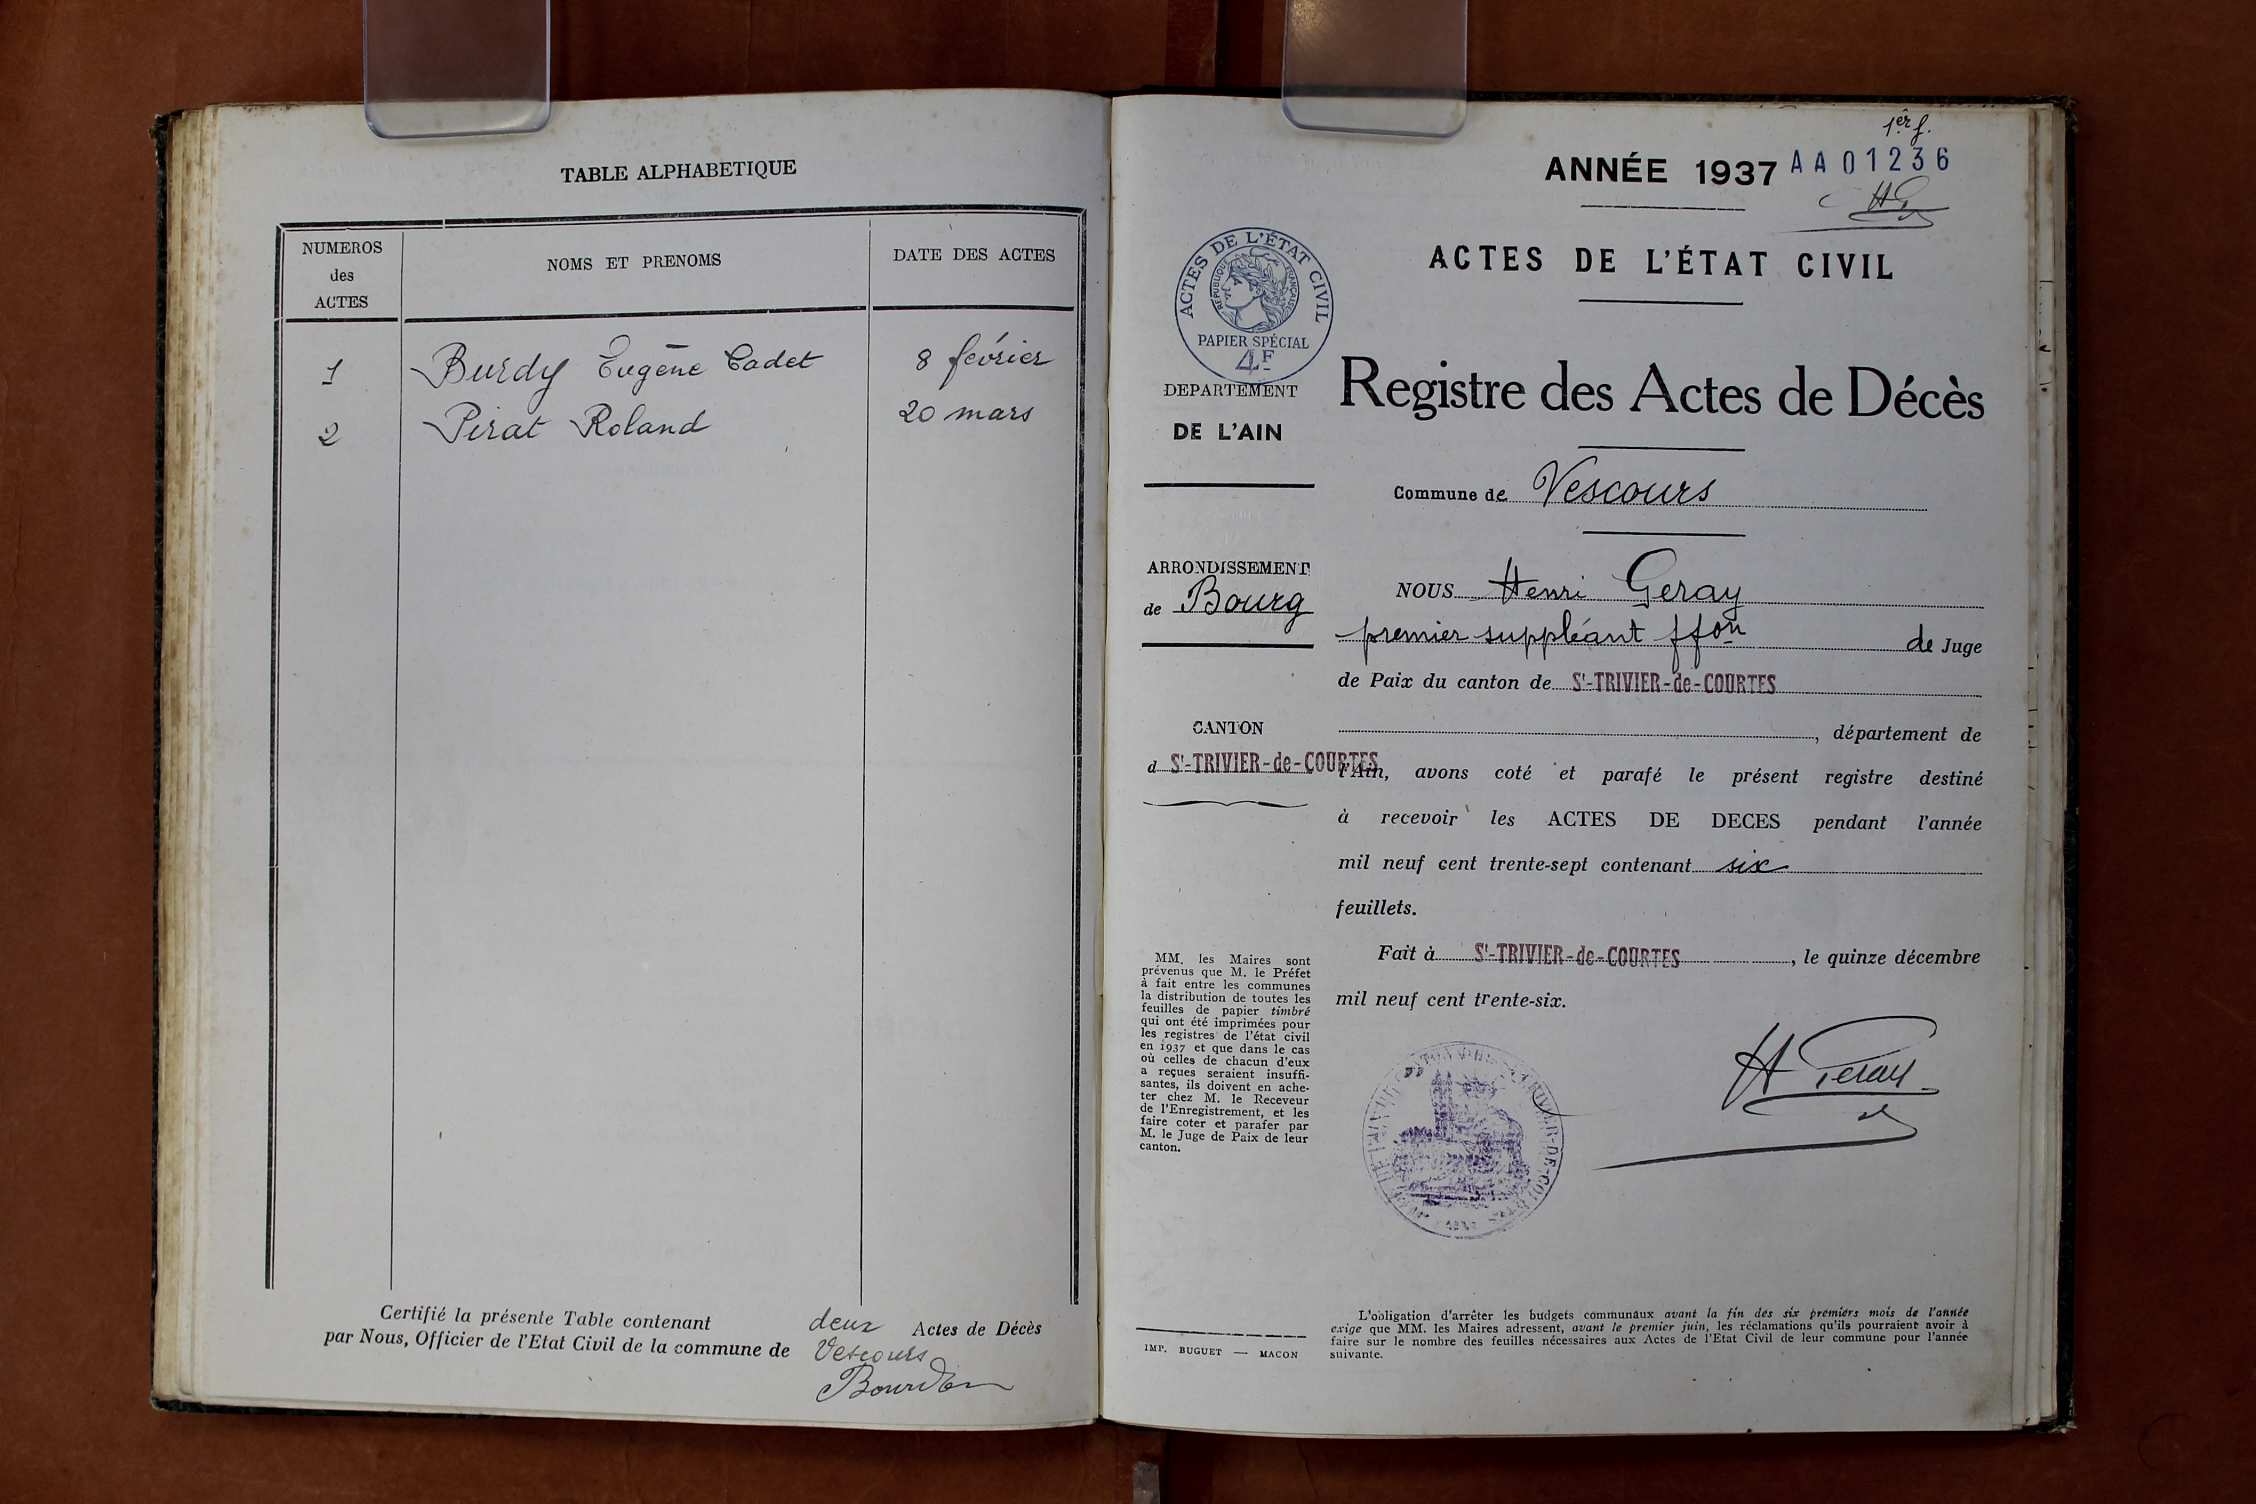 TABLE ALPHABETIQUE
NUMEROS
des
ACTES
NOMS ET PRENOMS
DATE DES ACTES
1 Burdy Eugène Cadet 8 février
2 Pirat Roland 20 mars
Certifié la présente Table contenant deux Actes de Décès
par Nous, Officier de l'Etat Civil de la commune de Vescours
1er f.
ANNÉE 1937 AA01236
ACTES DE L'ÉTAT CIVIL
ACTES DE L'ÉTAT CIVIL
RÉPUBLIQUE FRANÇAISE
PAPIER SPÉCIAL
4F
DEPARTEMENT
DE L'AIN
ARRONDISSEMENT
de Bourg
CANTON
d St-TRIVIER-de-COURTES
MM. les Maires sont
prévenus que M. le Préfet
à fait entre les communes
la distribution de toutes les
feuilles de papier timbré
qui ont été imprimées pour
les registres de l'état civil
en 1937 et que dans le cas
où celles de chacun d'eux
a reçues seraient insuffi-
santes, ils doivent en ache-
ter chez M. le Receveur
de l'Enregistrement, et les
faire coter et parafer par
M. le Juge de Paix de leur
canton.
IMP. BUGUET — MACON
Registre des Actes de Décès
Commune de Vescours
NOUS Henri Geray
premier suppléant ffon de Juge
de Paix du canton de St-TRIVIER-de-COURTES
, département de
l'Ain, avons coté et parafé le présent registre destiné
à recevoir les ACTES DE DECES pendant l'année
mil neuf cent trente-sept contenant six
feuillets.
Fait à St-TRIVIER-de-COURTES, le quinze décembre
mil neuf cent trente-six.
H Geray
L'obligation d'arrêter les budgets communaux avant la fin des six premiers mois de l'année
exige que MM. les Maires adressent, avant le premier juin, les réclamations qu'ils pourraient avoir à
faire sur le nombre des feuilles nécessaires aux Actes de l'Etat Civil de leur commune pour l'année
suivante.